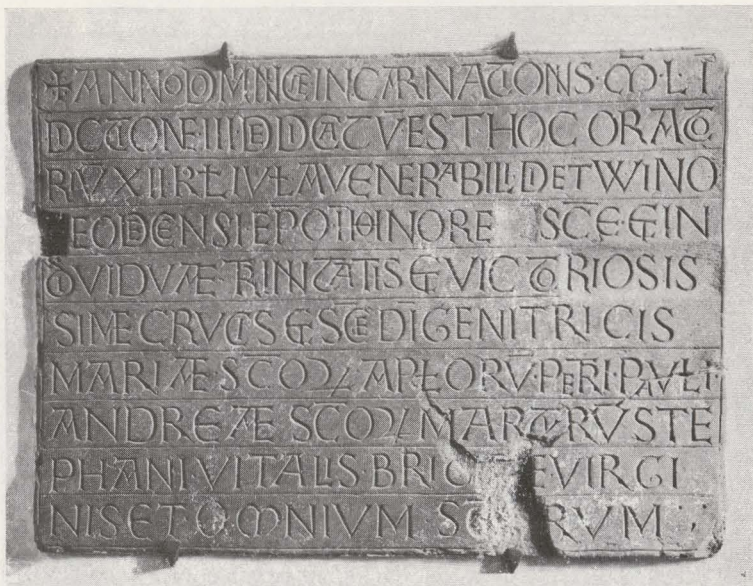 ✝ANNO DOMINICE INCARNATIONIS · M · L · I
DICTIONE · III · DEDICATV EST HOC ORATO
RIV XII KL IVL A VENERABILI DIETWINO
LEODICENSI EPO IN HONORE SCE · ET IN
DIVIDVAE TRINITATIS ET VICTORIOSIS
SIME CRVCIS ET SCE DI GENITRICIS
MARIAE SCORV APLORV · PETRI · PAVLI ·
ANDREAE SCORV MARTIRV STE
PHANI · VITALIS BRIG E VIRGI
NIS ET OMNIVM SCORVM